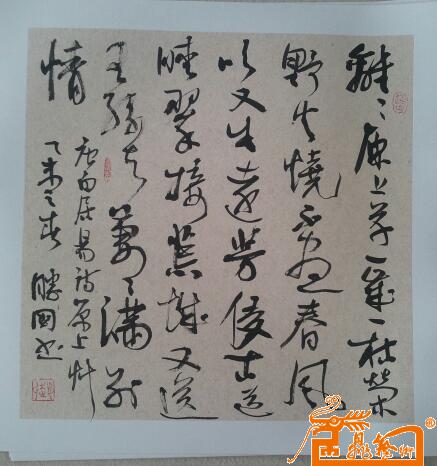 離〻原上草一歲一枯榮
野火燒不盡春風
吹又生遠芳侵古道
晴翠接荒城又送
王孫去萋〻滿別
情
唐白居易詩原上艸
乙未之春 鵬國书